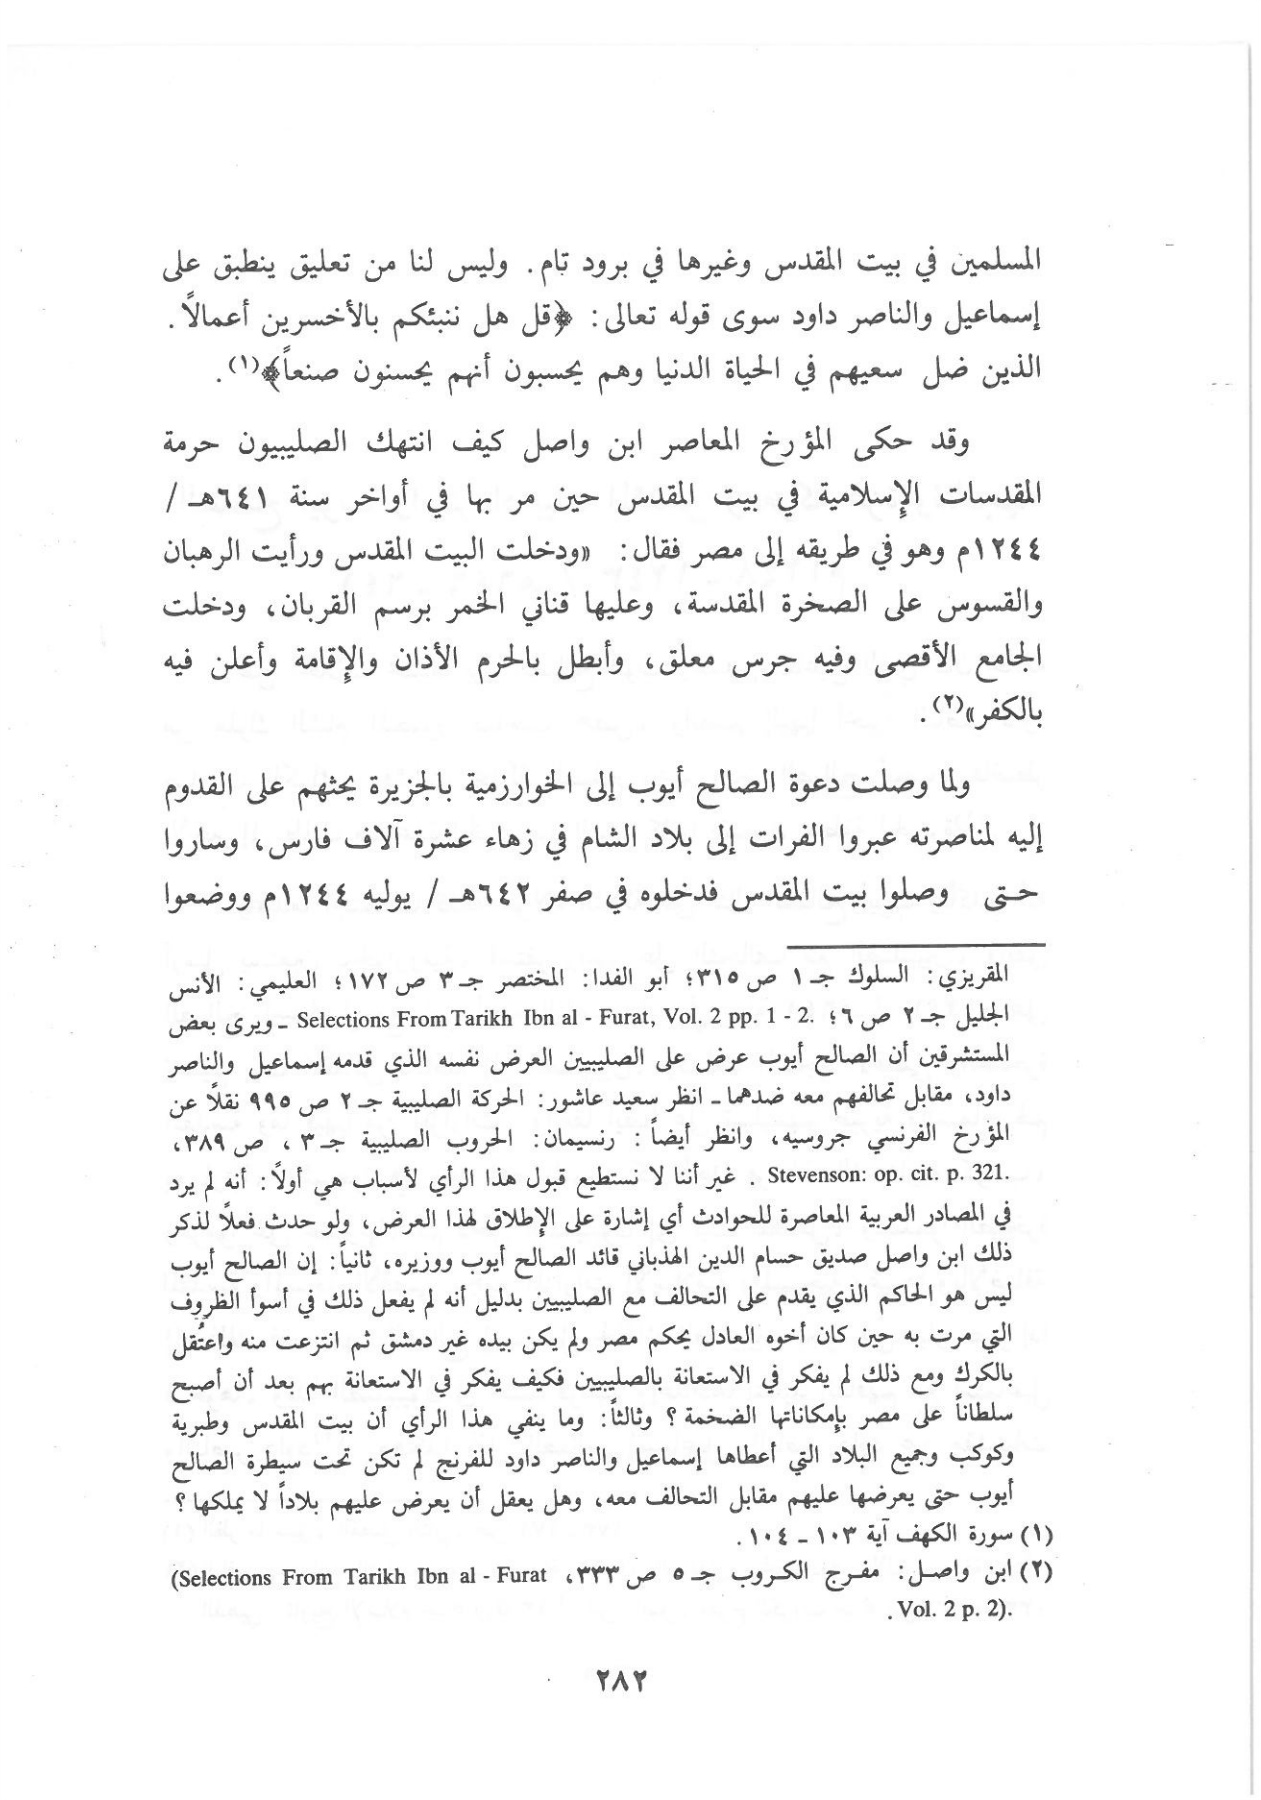 المسلمين في بيت المقدس وغيرها في برود تام. وليس لنا من تعليق ينطبق على
إسماعيل والناصر داود سوى قوله تعالى: ﴿قل هل ننبئكم بالأخسرين أعمالاً.
الذين ضل سعيهم في الحياة الدنيا وهم يحسبون أنهم يحسنون صنعاً﴾(١).
وقد حكى المؤرخ المعاصر ابن واصل كيف انتهك الصليبيون حرمة
المقدسات الإسلامية في بيت المقدس حين مر بها في أواخر سنة ٦٤١هـ /
١٢٤٤م وهو في طريقه إلى مصر فقال: «ودخلت البيت المقدس ورأيت الرهبان
والقسوس على الصخرة المقدسة، وعليها قناني الخمر برسم القربان، ودخلت
الجامع الأقصى وفيه جرس معلق، وأبطل بالحرم الأذان والإقامة وأعلن فيه
بالكفر»(٢).
ولما وصلت دعوة الصالح أيوب إلى الخوارزمية بالجزيرة يحثهم على القدوم
إليه لمناصرته عبروا الفرات إلى بلاد الشام في زهاء عشرة آلاف فارس، وساروا
حتى وصلوا بيت المقدس فدخلوه في صفر ٦٤٢هـ / يوليه ١٢٤٤م ووضعوا
المقريزي: السلوك جـ ١ ص ٣١٥؛ أبو الفدا: المختصر جـ ٣ ص ١٧٢؛ العليمي: الأنس
الجليل جـ ٢ ص ٦؛ Selections From Tarikh Ibn al - Furat, Vol. 2 pp. 1 - 2. ـ ويرى بعض
المستشرقين أن الصالح أيوب عرض على الصليبيين العرض نفسه الذي قدمه إسماعيل والناصر
داود، مقابل تحالفهم معه ضدهما ـ انظر سعيد عاشور: الحركة الصليبية جـ ٢ ص ٩٩٥ نقلاً عن
المؤرخ الفرنسي جروسيه، وانظر أيضاً: رنسيمان: الحروب الصليبية جـ ٣ ، ص ٣٨٩،
Stevenson: op. cit. p. 321. . غير أننا لا نستطيع قبول هذا الرأي لأسباب هي أولاً: أنه لم يرد
في المصادر العربية المعاصرة للحوادث أي إشارة على الإطلاق لهذا العرض، ولو حدث فعلاً لذكر
ذلك ابن واصل صديق حسام الدين الهذباني قائد الصالح أيوب ووزيره، ثانياً: إن الصالح أيوب
ليس هو الحاكم الذي يقدم على التحالف مع الصليبيين بدليل أنه لم يفعل ذلك في أسوأ الظروف
التي مرت به حين كان أخوه العادل يحكم مصر ولم يكن بيده غير دمشق ثم انتزعت منه واعتُقل
بالكرك ومع ذلك لم يفكر في الاستعانة بالصليبيين فكيف يفكر في الاستعانة بهم بعد أن أصبح
سلطاناً على مصر بإمكاناتها الضخمة؟ وثالثاً: وما ينفي هذا الرأي أن بيت المقدس وطبرية
وكوكب وجميع البلاد التي أعطاها إسماعيل والناصر داود للفرنج لم تكن تحت سيطرة الصالح
أيوب حتى يعرضها عليهم مقابل التحالف معه، وهل يعقل أن يعرض عليهم بلاداً لا يملكها؟
(١) سورة الكهف آية ١٠٣ ـ ١٠٤.
(٢) ابن واصل: مفرج الكروب جـ ٥ ص ٣٣٣، (Selections From Tarikh Ibn al - Furat
Vol. 2 p. 2). .
٢٨٢